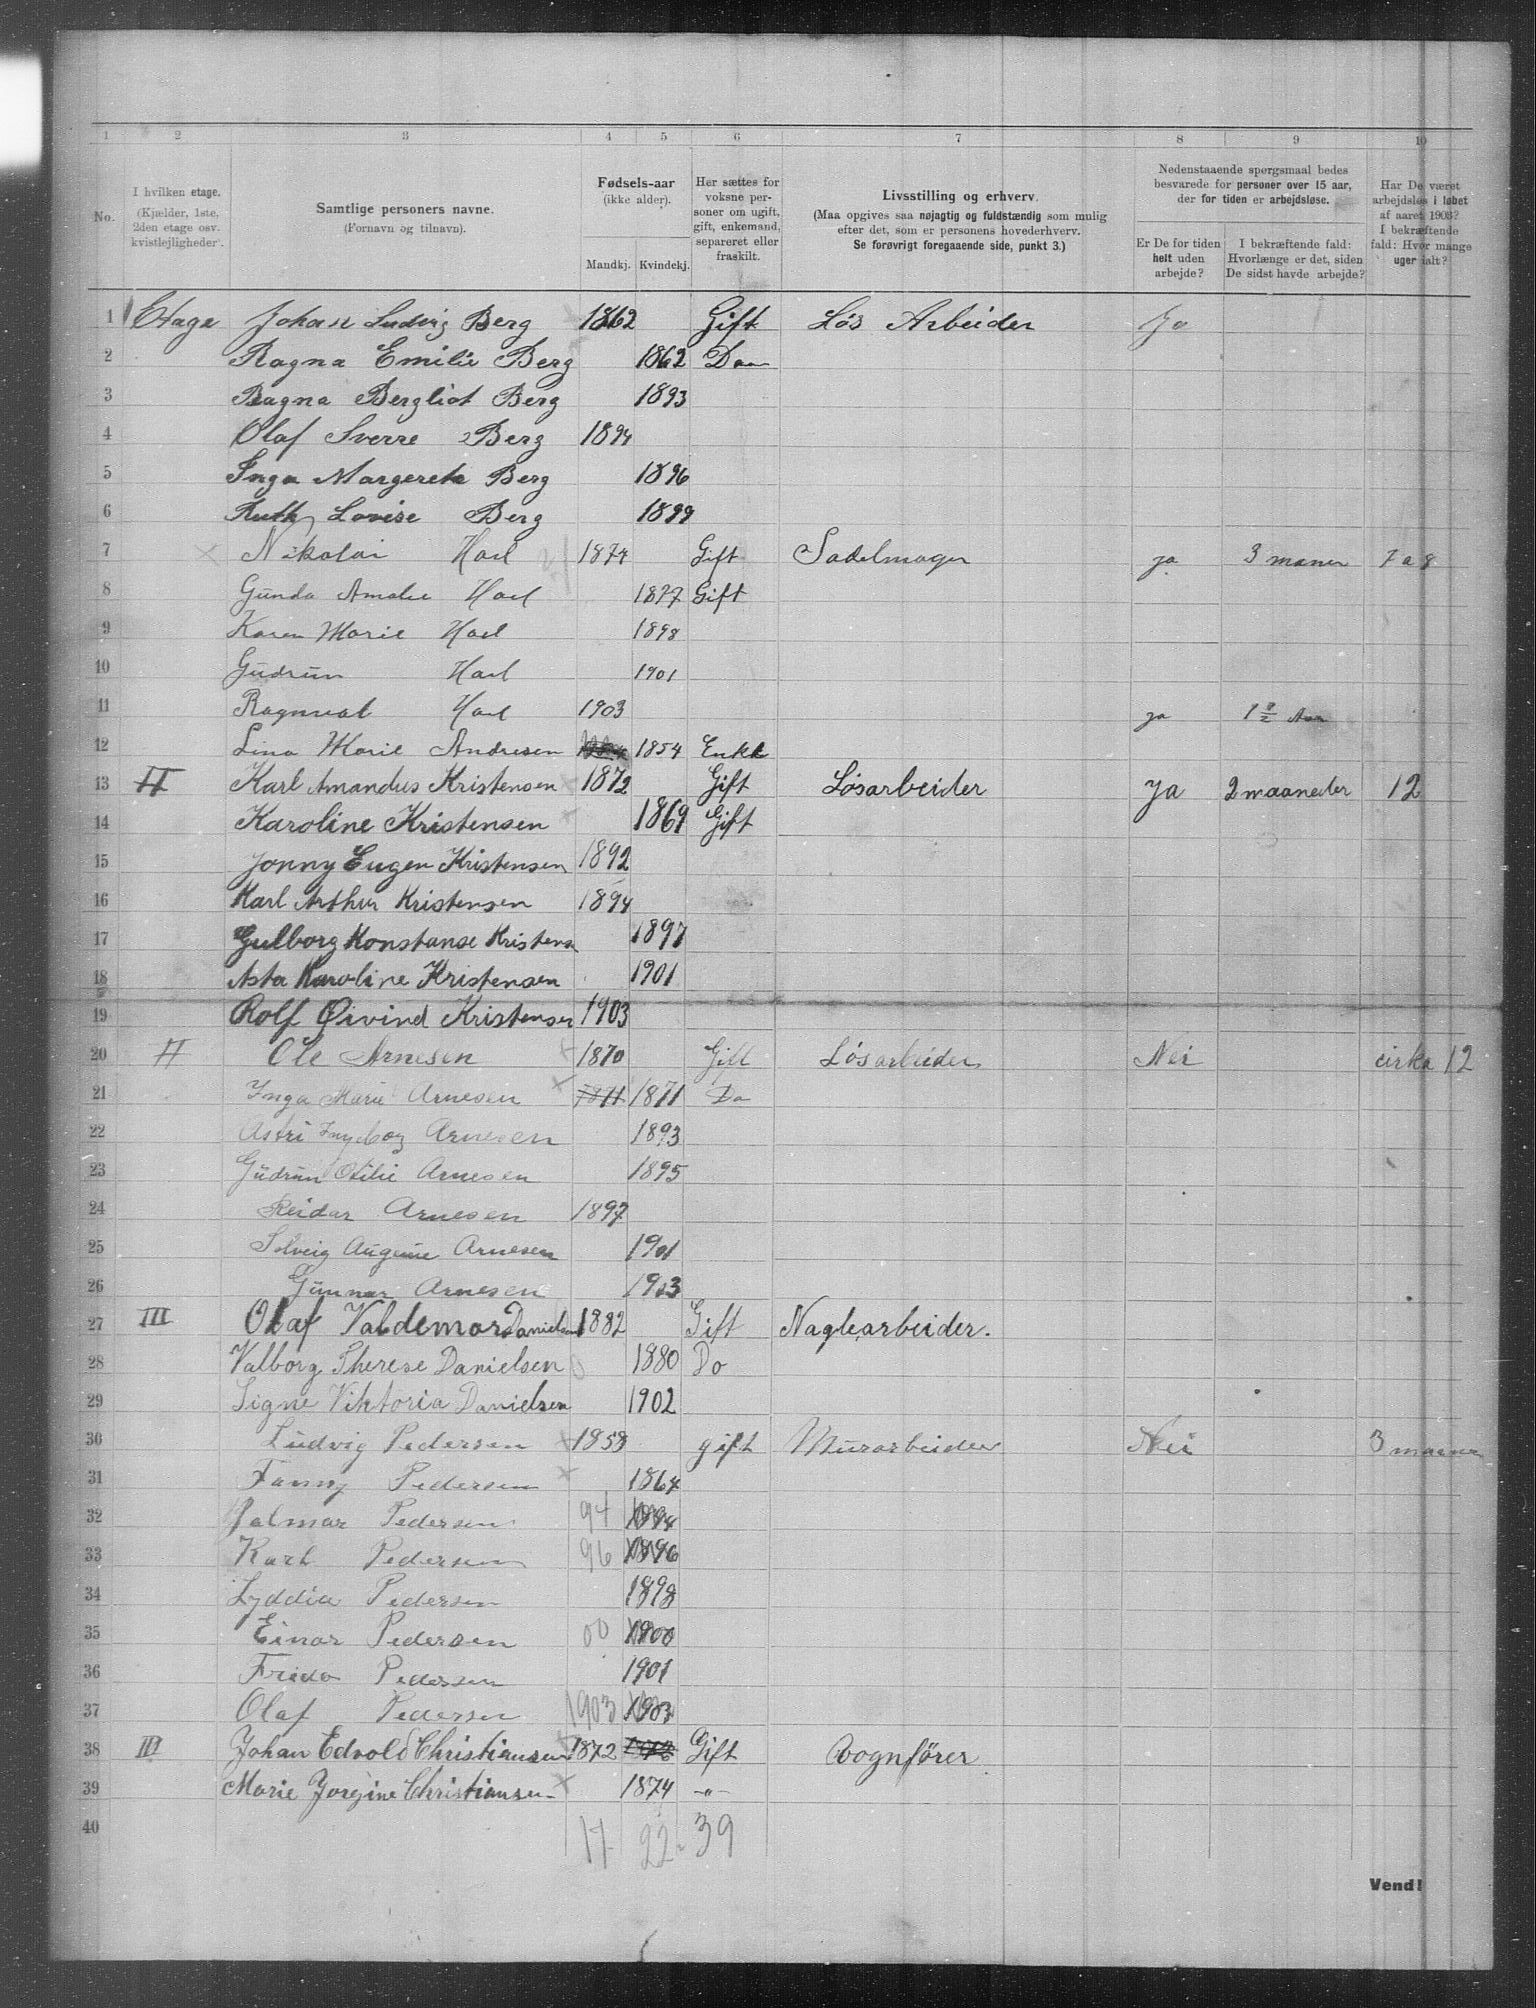 1 2 3 4 5 6 7 8 9 10
No.
I hvilken etage.
(Kjælder, 1ste,
2den etage osv.
kvistlejligheder).
Samtlige personers navne.
(Fornavn og tilnavn).
Fødsels-aar
(ikke alder).
Mandkj. Kvindekj.
Her sættes for
voksne per-
soner om ugift,
gift, enkemand,
separeret eller
fraskilt.
Livsstilling og erhverv.
(Maa opgives saa nøjagtig og fuldstændig som mulig
efter det, som er personens hovederhverv.
Se forøvrigt foregaaende side, punkt 3.)
Nedenstaaende spørgsmaal bedes
besvarede for personer over 15 aar,
der for tiden er arbejdsløse.
Er De for tiden
helt uden
arbejde?
I bekræftende fald:
Hvorlænge er det, siden
De sidst havde arbejde?
Har De været
arbejdsløs i løbet
af aaret 1903?
I bekræftende
fald: Hvor mange
uger ialt?
1 Etage Johan Ludvig Berg 1862 Gift Løs Arbeider Ja
2 Ragna Emilie Berg 1862 Do
3 Ragna Bergliot Berg 1893
4 Olaf Sverre Berg 1894
5 Inga Margerete Berg 1896
6 Ruth Lovise Berg 1899
7 Nikolai Hael 1874 Gift Sadelmager ja 3 maner 7 a 8
8 Gunda Amalie Hael 1877 Gift
9 Karen Marie Hael 1898
10 Gudrun Hael 1901
11 Ragnvat Hael 1903 ja 1 ½ Aar
12 Lina Marie Andresen 1854 Enke
13 II Karl Amandus Kristensen 1872 Gift Løsarbeider Ja 2 maaneder 12
14 Karoline Kristensen 1869 Gift
15 Jonny Eugen Kristensen 1892
16 Karl Arthur Kristensen 1894
17 Gulborg Konstanse Kristens 1897
18 Asta Karoline Kristensen 1901
19 Rolf Øivind Kristensen 1903
20 II Ole Arnesen 1870 Gift Løsarbeider Nei cirka 12
21 Inga Marie Arnesen 1871 1871 Do
22 Astri Ingeborg Arnesen 1893
23 Gudrun Otilie Arnesen 1895
24 Reidar Arnesen 1897
25 Solveig Augune Arnesen 1901
26 Gunnar Arnesen 1903
27 III Olaf Valdemar Danielsen 1882 Gift Naglearbeider.
28 Valborg Therese Danielsen 1880 Do
29 Signe Viktoria Danielsen 1902
30 Ludvig Pedersen 1858 gift Murarbeider Nei 3 maaner
31 Fanny Pedersen 1864
32 Jalmar Pedersen 94 1894
33 Karl Pedersen 96 1896
34 Lyddia Pedersen 1898
35 Einar Pedersen 00 1900
36 Frida Pedersen 1901
37 Olaf Pedersen 1903 1903
38 III Johan Edvold Christiansen 1872 1872 Gift Vognfører
39 Marie Joregine Christiansen 1874 -"-
40 17 22 - 39
Vend!